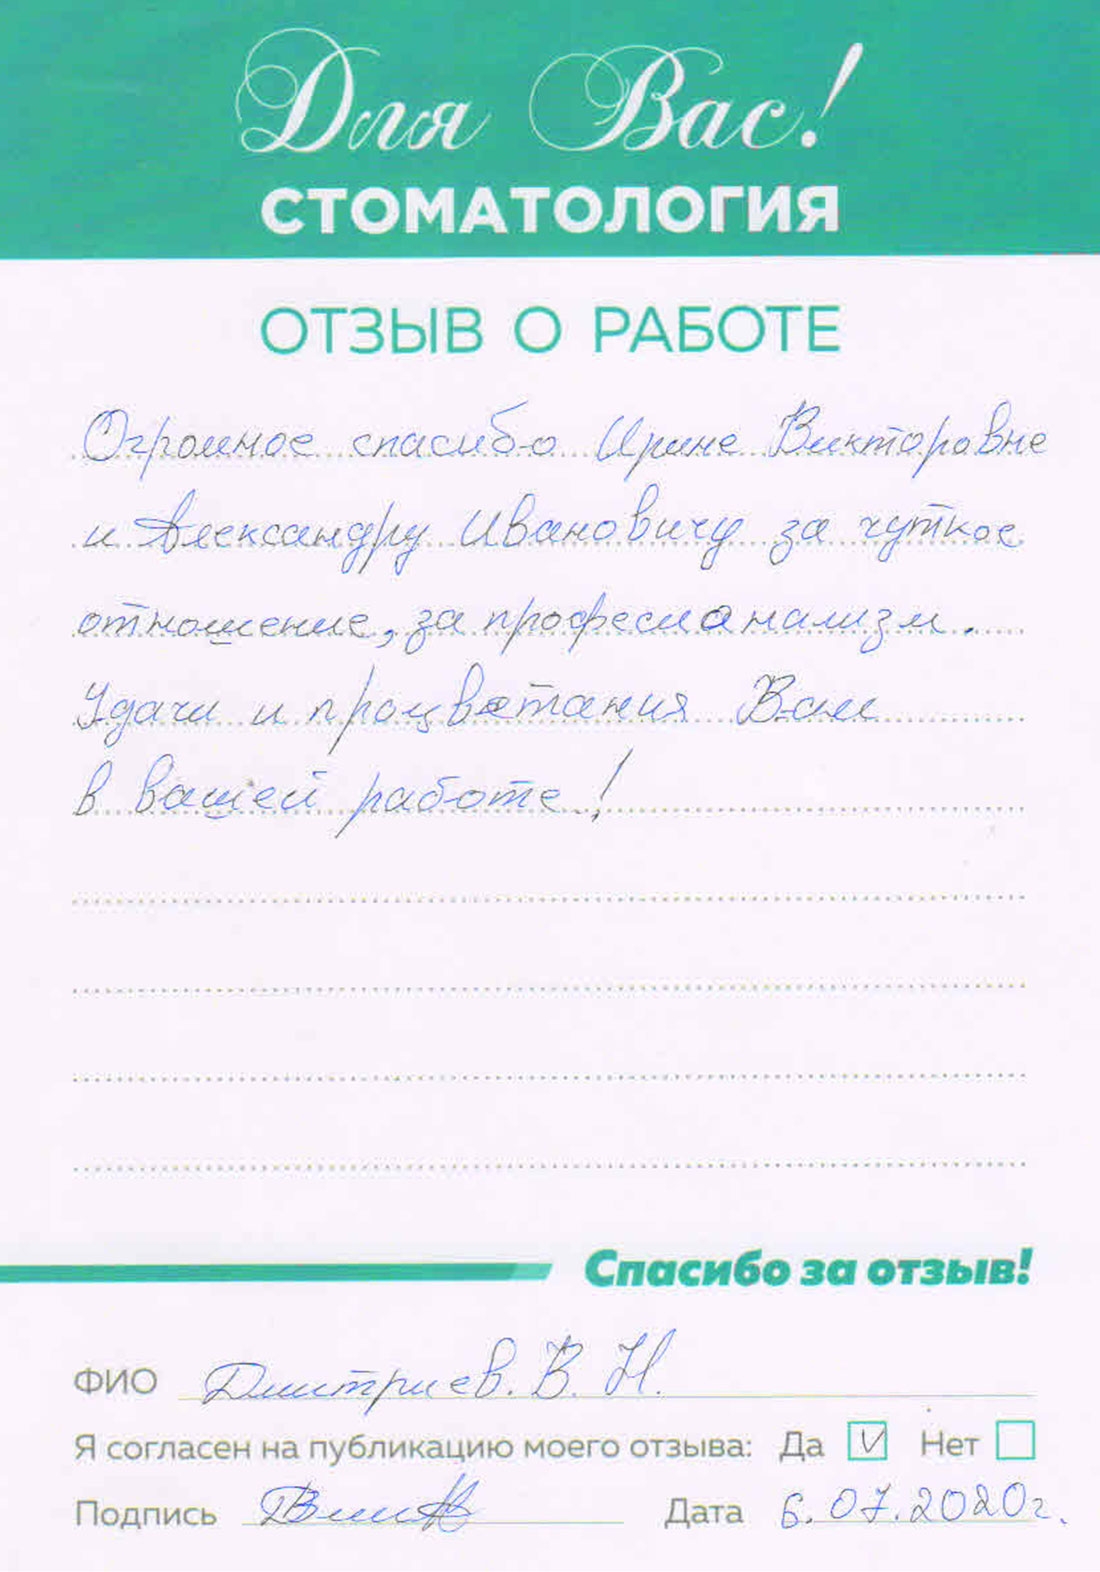 Для Вас!
СТОМАТОЛОГИЯ
ОТЗЫВ О РАБОТЕ
Огромное спасибо Ирине Викторовне
и Александру Ивановичу за чуткое
отношение, за професионализм.
Удачи и процветания Вам
в вашей работе!
Спасибо за отзыв!
ФИО Дмитриев. В. Н.
Я согласен на публикацию моего отзыва: Да V Нет
Подпись Дата 6.07.2020г.